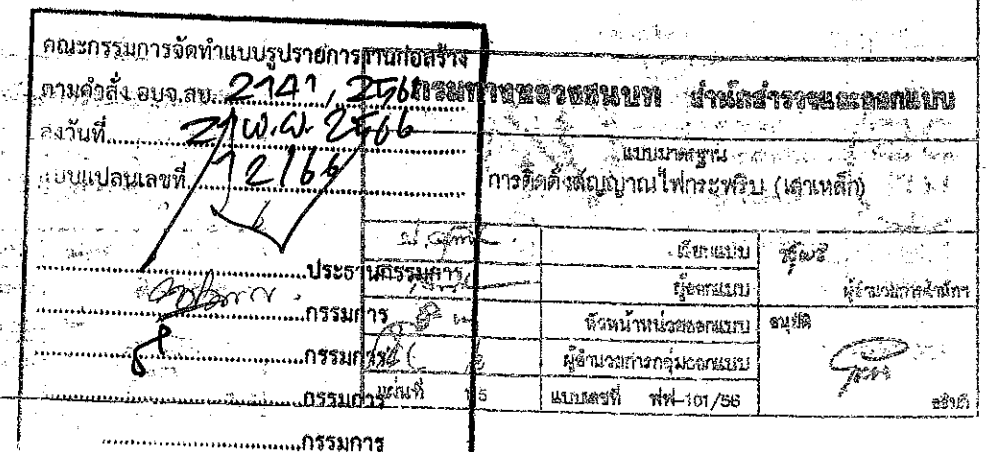 คณะกรรมการจัดทำแบบรูปรายการงานก่อสร้าง
ตามคำสั่ง อบจ.สบ. 2141, 2566
ลงวันที่ 21 พ.ย. 2566
แบบแปลนเลขที่ 12/66
ประธานกรรมการ
กรรมการ
กรรมการ
กรรมการ
กรรมการ
กรมทางหลวงชนบท สำนักสำรวจและออกแบบ
แบบมาตรฐาน
การติดตั้งสัญญาณไฟกระพริบ (เสาเหล็ก)
เขียนแบบ
ผู้ออกแบบ
ผู้อำนวยการสำนักฯ
หัวหน้าหน่วยออกแบบ อนุมัติ
ผู้อำนวยการกลุ่มออกแบบ
แผ่นที่ แบบเลขที่ ฟฟ-101/56 อธิบดี